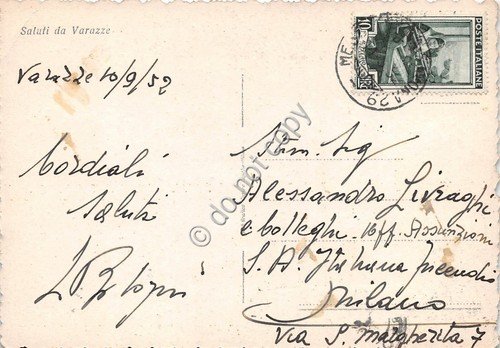 Saluti da Varazze
Varazze 10/9/52
Cordiali
Saluti
POSTE ITALIANE
10
Stim. Sig
Alessandro Livraghi
e Colleghi Uff. Assunzioni
S. A. Italiana Incendio
Milano
Via S. Margherita 7
do not copy